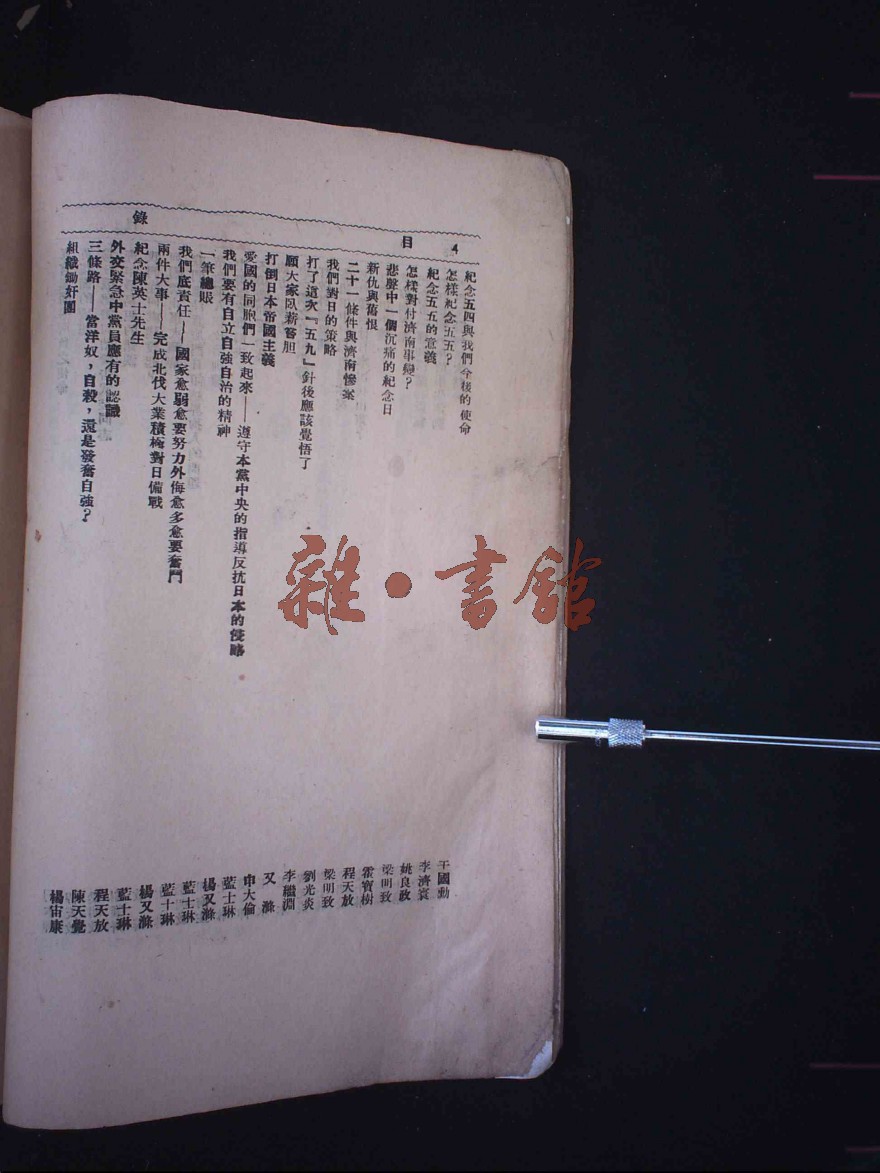 4
目
錄
紀念五四與我們今後的使命　干國勳
怎樣紀念五五？　李濟寰
紀念五五的意義　姚良政
怎樣對付濟南事變？　梁明致
悲聲中一個沉痛的紀念日　霍寶樹
新仇與舊恨　程天放
二十一條件與濟南慘案　梁明致
我們對日的策略　劉光炎
打了這次『五九』針後應該覺悟了　李繼淵
願大家臥薪嘗胆　又滌
打倒日本帝國主義　申大倫
愛國的同胞們一致起來——遵守本黨中央的指導反抗日本的侵略　藍士琳
我們要有自立自強自治的精神　楊又滌
一筆總賬　藍士琳
我們底責任——國家愈弱愈要努力外侮愈多愈要奮鬥　藍士琳
兩件大事——完成北伐大業積極對日備戰　楊又滌
紀念陳英士先生　藍士琳
外交緊急中黨員應有的認識　程天放
三條路——當洋奴，自殺，還是發奮自強？　陳天覺
組織鋤奸團　楊宙康
雜・書館